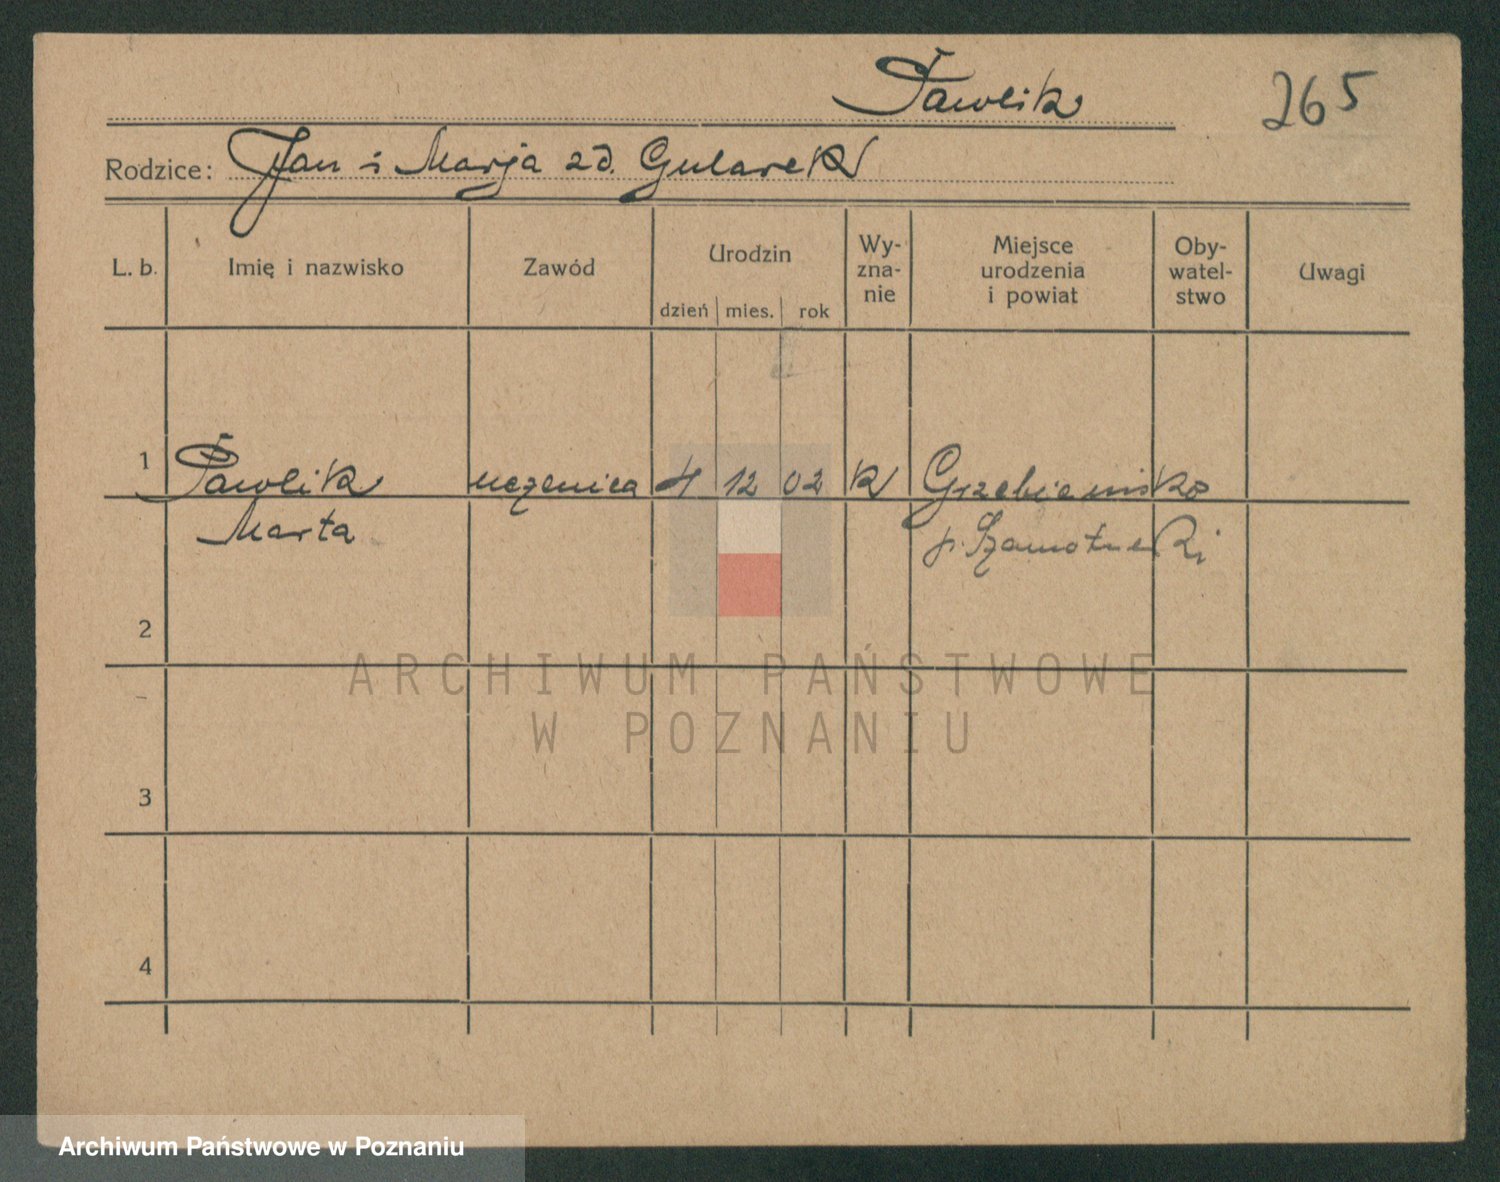 Pawlik
265
Rodzice: Jan i Marja zd. Gularek
L. b. Imię i nazwisko Zawód Urodzin Wy-zna-nie Miejsce urodzenia i powiat Oby-watel-stwo Uwagi
dzień mies. rok
1 Pawlik uczenica 4 12 02 K Grzebienisko
Marta p. Szamotulski
2
ARCHIWUM PAŃSTWOWE
W POZNANIU
3
4
Archiwum Państwowe w Poznaniu